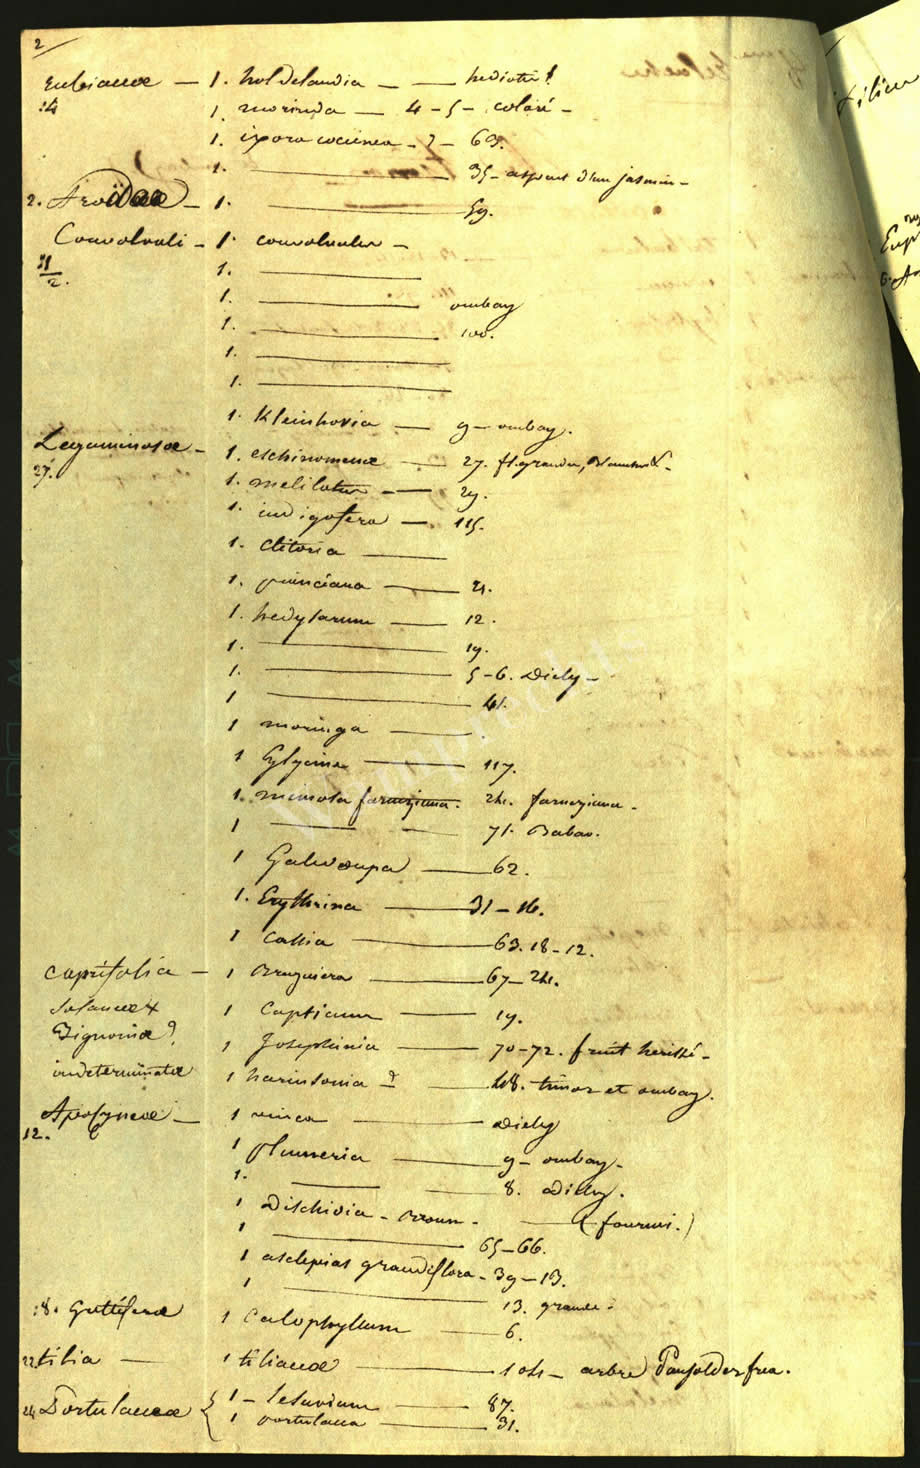 2
Rubiaceæ — 1. holdelandia — — hediotis
14 1. morinda — 4 – 5 – coloré –
1. ixora coccinea – ? – 63.
1. ——— 35 – aspect d'un jasmin –
2. Aroideæ – 1. ——— 59.
Convolvuli – 1. convolvulus –
11/2. 1. ———
1. ——— ombay
1. ——— 100.
1. ———
1. ———
1. Kleinhovia — 9 – ombay.
Leguminosæ – 1. eschinomene — 27. fl. grandes,
27. 1. melilotus – — 29.
1. indigofera — 115.
1. clitoria ———
1. poinciana — 21.
1. hedysarum — 12.
1. ——— 19.
1. ——— 5 – 6. Diely –
1 ——— 41.
1 moringa ——— .
1 Glycine ——— 117.
1. mimosa farneziana. 24. farneziana.
1 ——— — 71. Babao.
1 Galedupa ——— 62.
1. Erythrina ——— 31 – 16.
1 Cassia ——— 63. 18 – 12.
Caprifolia — 1 Bruguiera ——— 67 – 24.
Solaneæ 1 Capsicum ——— 19.
Bignoniæ? 1 Josephinia ——— 70 – 72. fruit herissé –
indeterminatæ 1 harissonia ? — 48. timor et ombay.
Apocyneæ — 1 vinca ——— Diely
12. 1 plumeria ——— 9 – ombay –
1. ——— — 8. Diely.
1 Dischidia – — (fourmi.)
1 ——— 65 – 66.
1 asclepias grandiflora – 39 – 13.
1 ——— 13. grande.
18. Guttiferæ 1 Calophyllum — 6.
22. tilia — 1 tiliaceæ ——— 104 – arbre
24 Portulaceæ { 1 – Sesuvium ——— 87.
1 portulaca ——— 31.
tiliac